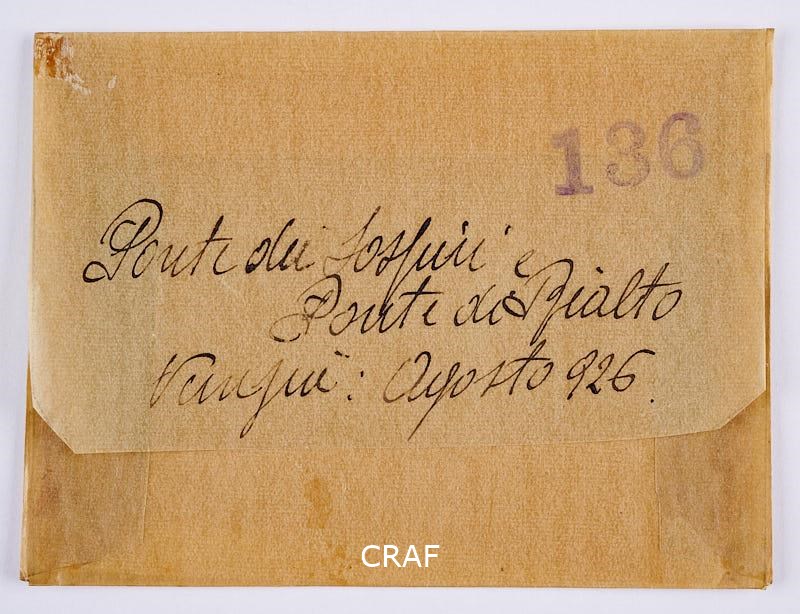 136
Ponte dei Sospiri e
Ponte di Rialto
Venezia: Agosto 926.
CRAF